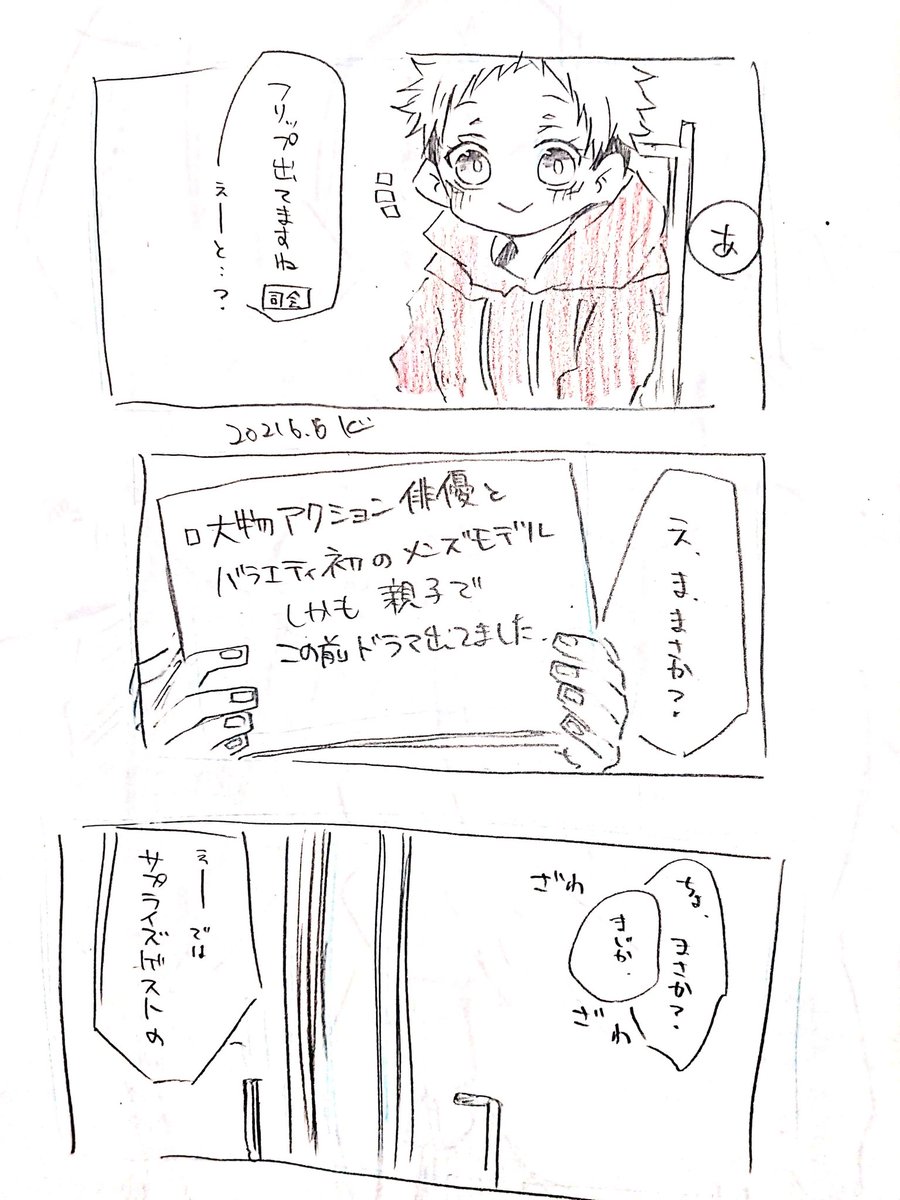 あ
フリップ出てますね
司会
えーと…?
2021.6.6
え、ま、まさか?
□大物アクション俳優と
バラエティ初のメンズモデル
しかも親子で
この前ドラマ出てました.
ちょ、まさか?
まじか.
ざわ
ざわ
えーでは
サプライズゲストの